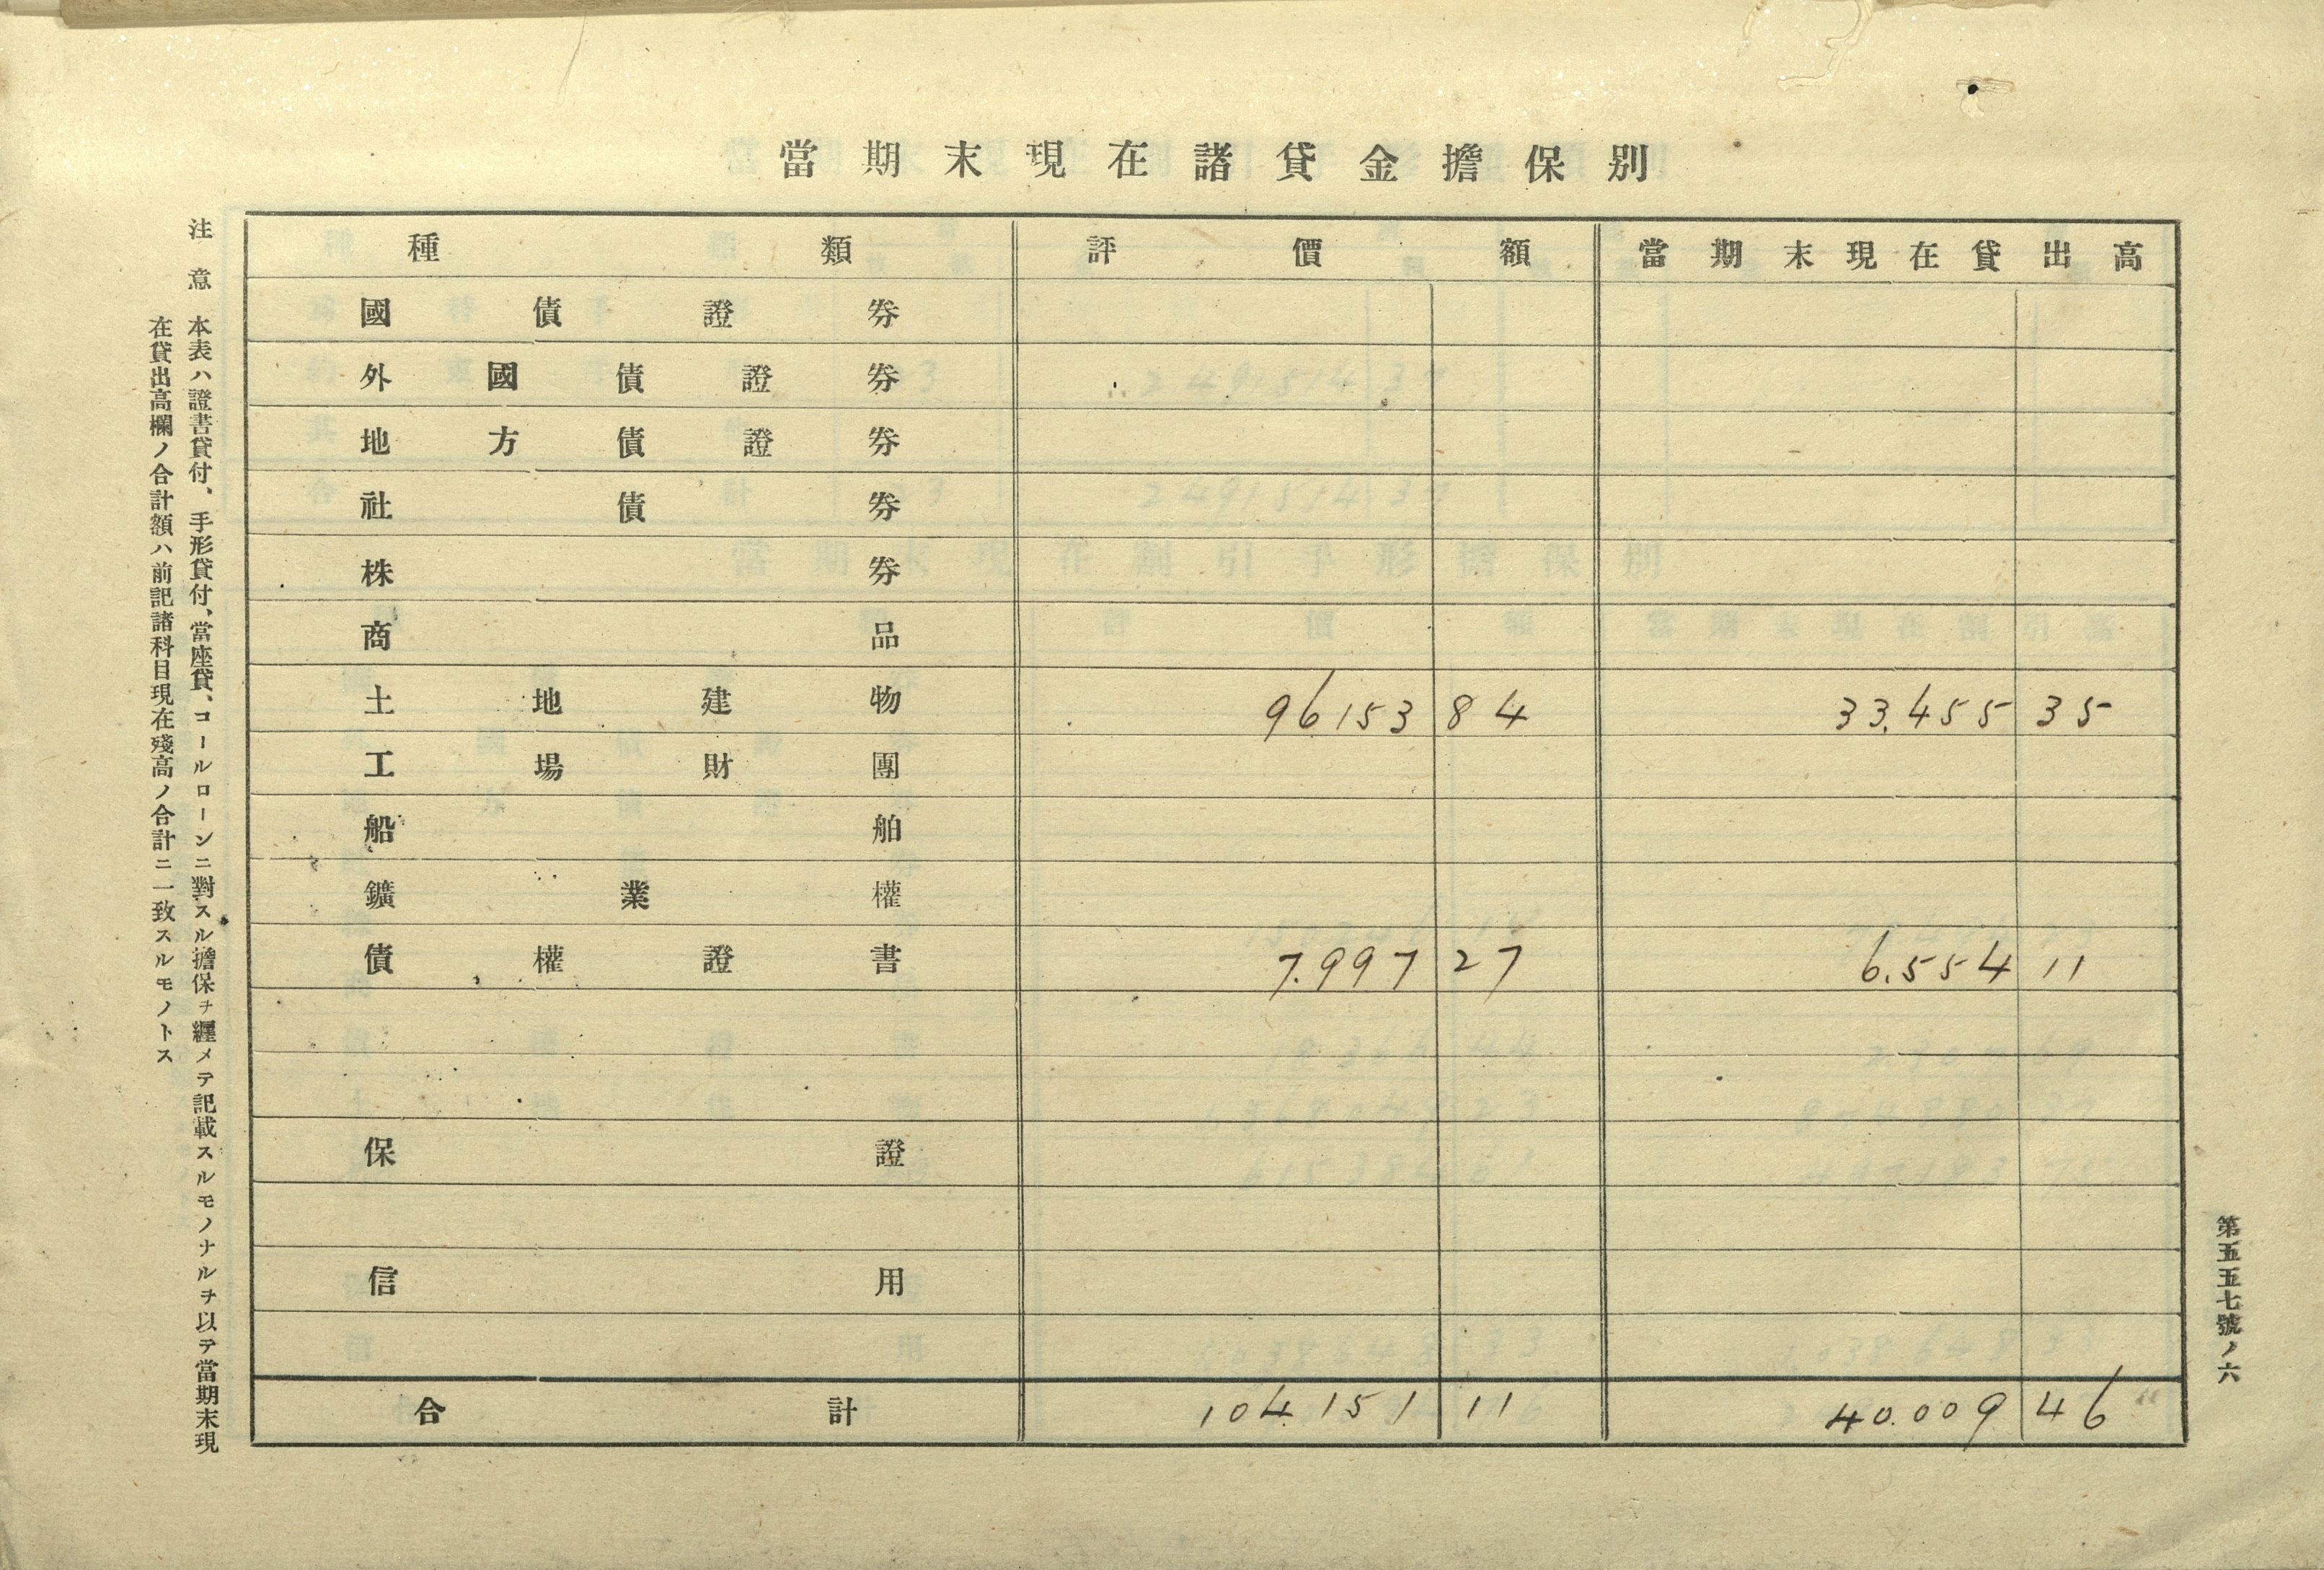 當期末現在諸貸金擔保別
種類 評價額 當期末現在貸出高
國債證券
外國債證券
地方債證券
社債券
株券
商品
土地建物 96153 84 33.455 35
工場財團
船舶
鑛業權
債權證書 7.997 27 6.554 11
保證
信用
合計 104.151 11 40.009 46
注意 本表ハ證書貸付、手形貸付、當座貸、コールローンニ對スル擔保ヲ纒メテ記載スルモノナルヲ以テ當期末現
在貸出高欄ノ合計額ハ前記諸科目現在殘高ノ合計ニ一致スルモノトス
第五五七號ノ六